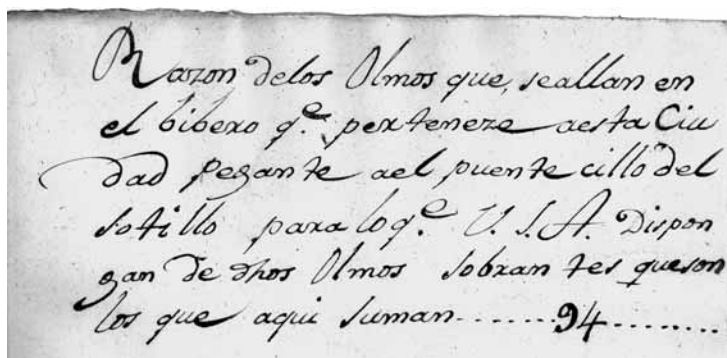 Razon delos Olmos que, seallan en
el bibero q.e perteneze aesta Ciu
dad pegante ael puente cillo del
sotillo para lo q.e V. S. A. Dispon
gan de dhos Olmos sobran tes queson
los que aqui suman......94........